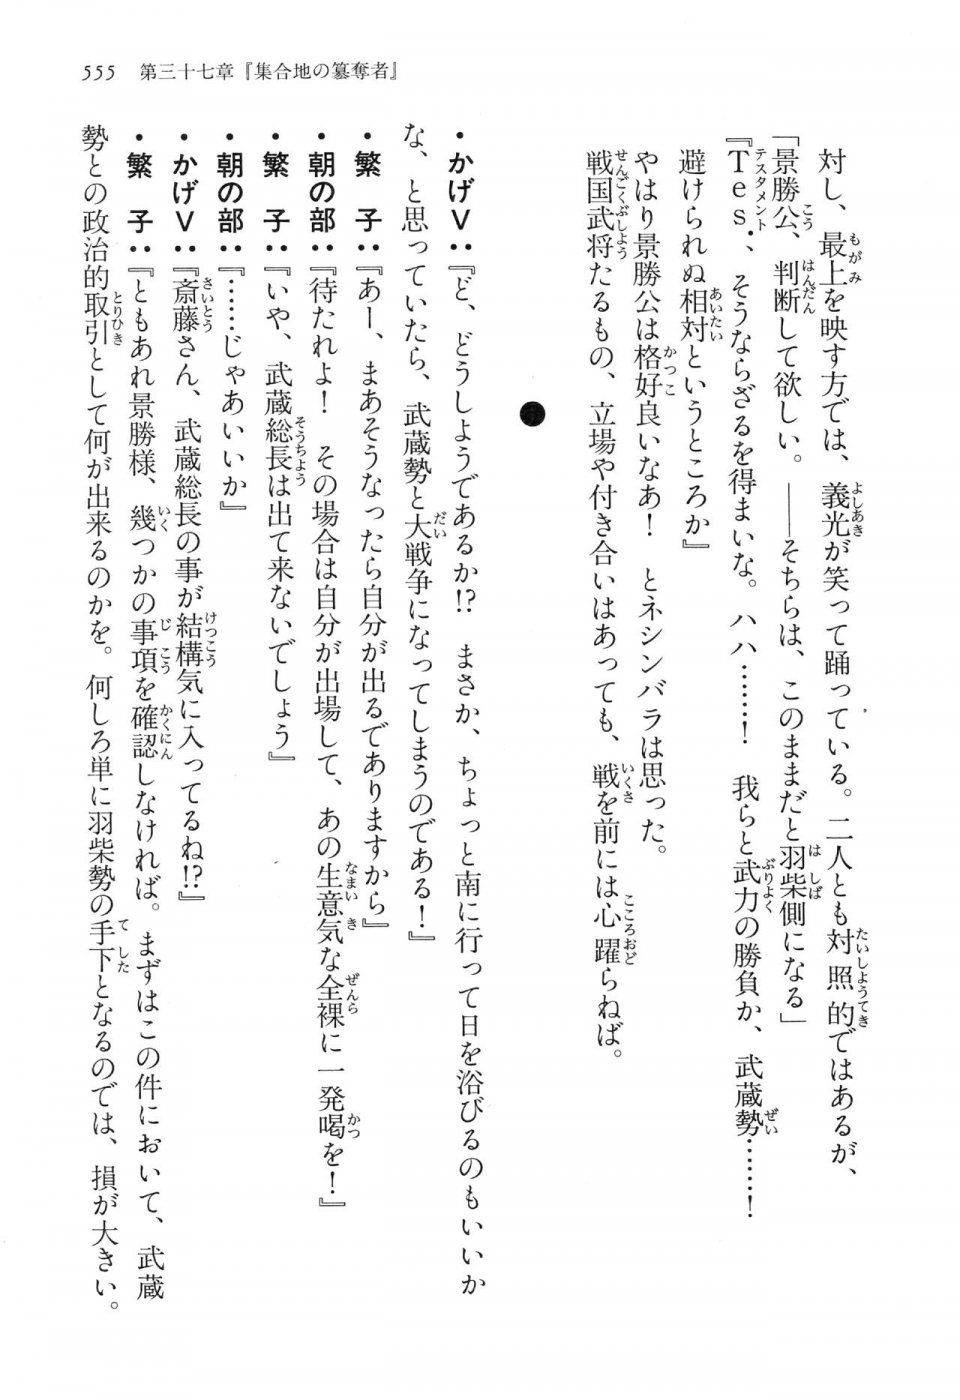 555　第三十七章『集合地の簒奪者』
対し、最上を映す方では、義光が笑って踊っている。二人とも対照的ではあるが、
「景勝公、判断して欲しい。――そちらは、このままだと羽柴側になる」
『Ｔｅｓ．、そうならざるを得まいな。ハハ……！　我らと武力の勝負か、武蔵勢……！
避けられぬ相対というところか』
やはり景勝公は格好良いなあ！　とネシンバラは思った。
戦国武将たるもの、立場や付き合いはあっても、戦を前には心躍らねば。
●
・かげＶ：『ど、どうしようであるか!?　まさか、ちょっと南に行って日を浴びるのもいいか
な、と思っていたら、武蔵勢と大戦争になってしまうのである！』
・繁　子：『あー、まあそうなったら自分が出るでありますから』
・朝の部：『待たれよ！　その場合は自分が出場して、あの生意気な全裸に一発喝を！』
・繁　子：『いや、武蔵総長は出て来ないでしょう』
・朝の部：『……じゃあいいか』
・かげＶ：『斎藤さん、武蔵総長の事が結構気に入ってるね!?』
・繁　子：『ともあれ景勝様、幾つかの事項を確認しなければ。まずはこの件において、武蔵
勢との政治的取引として何が出来るのかを。何しろ単に羽柴勢の手下となるのでは、損が大きい。